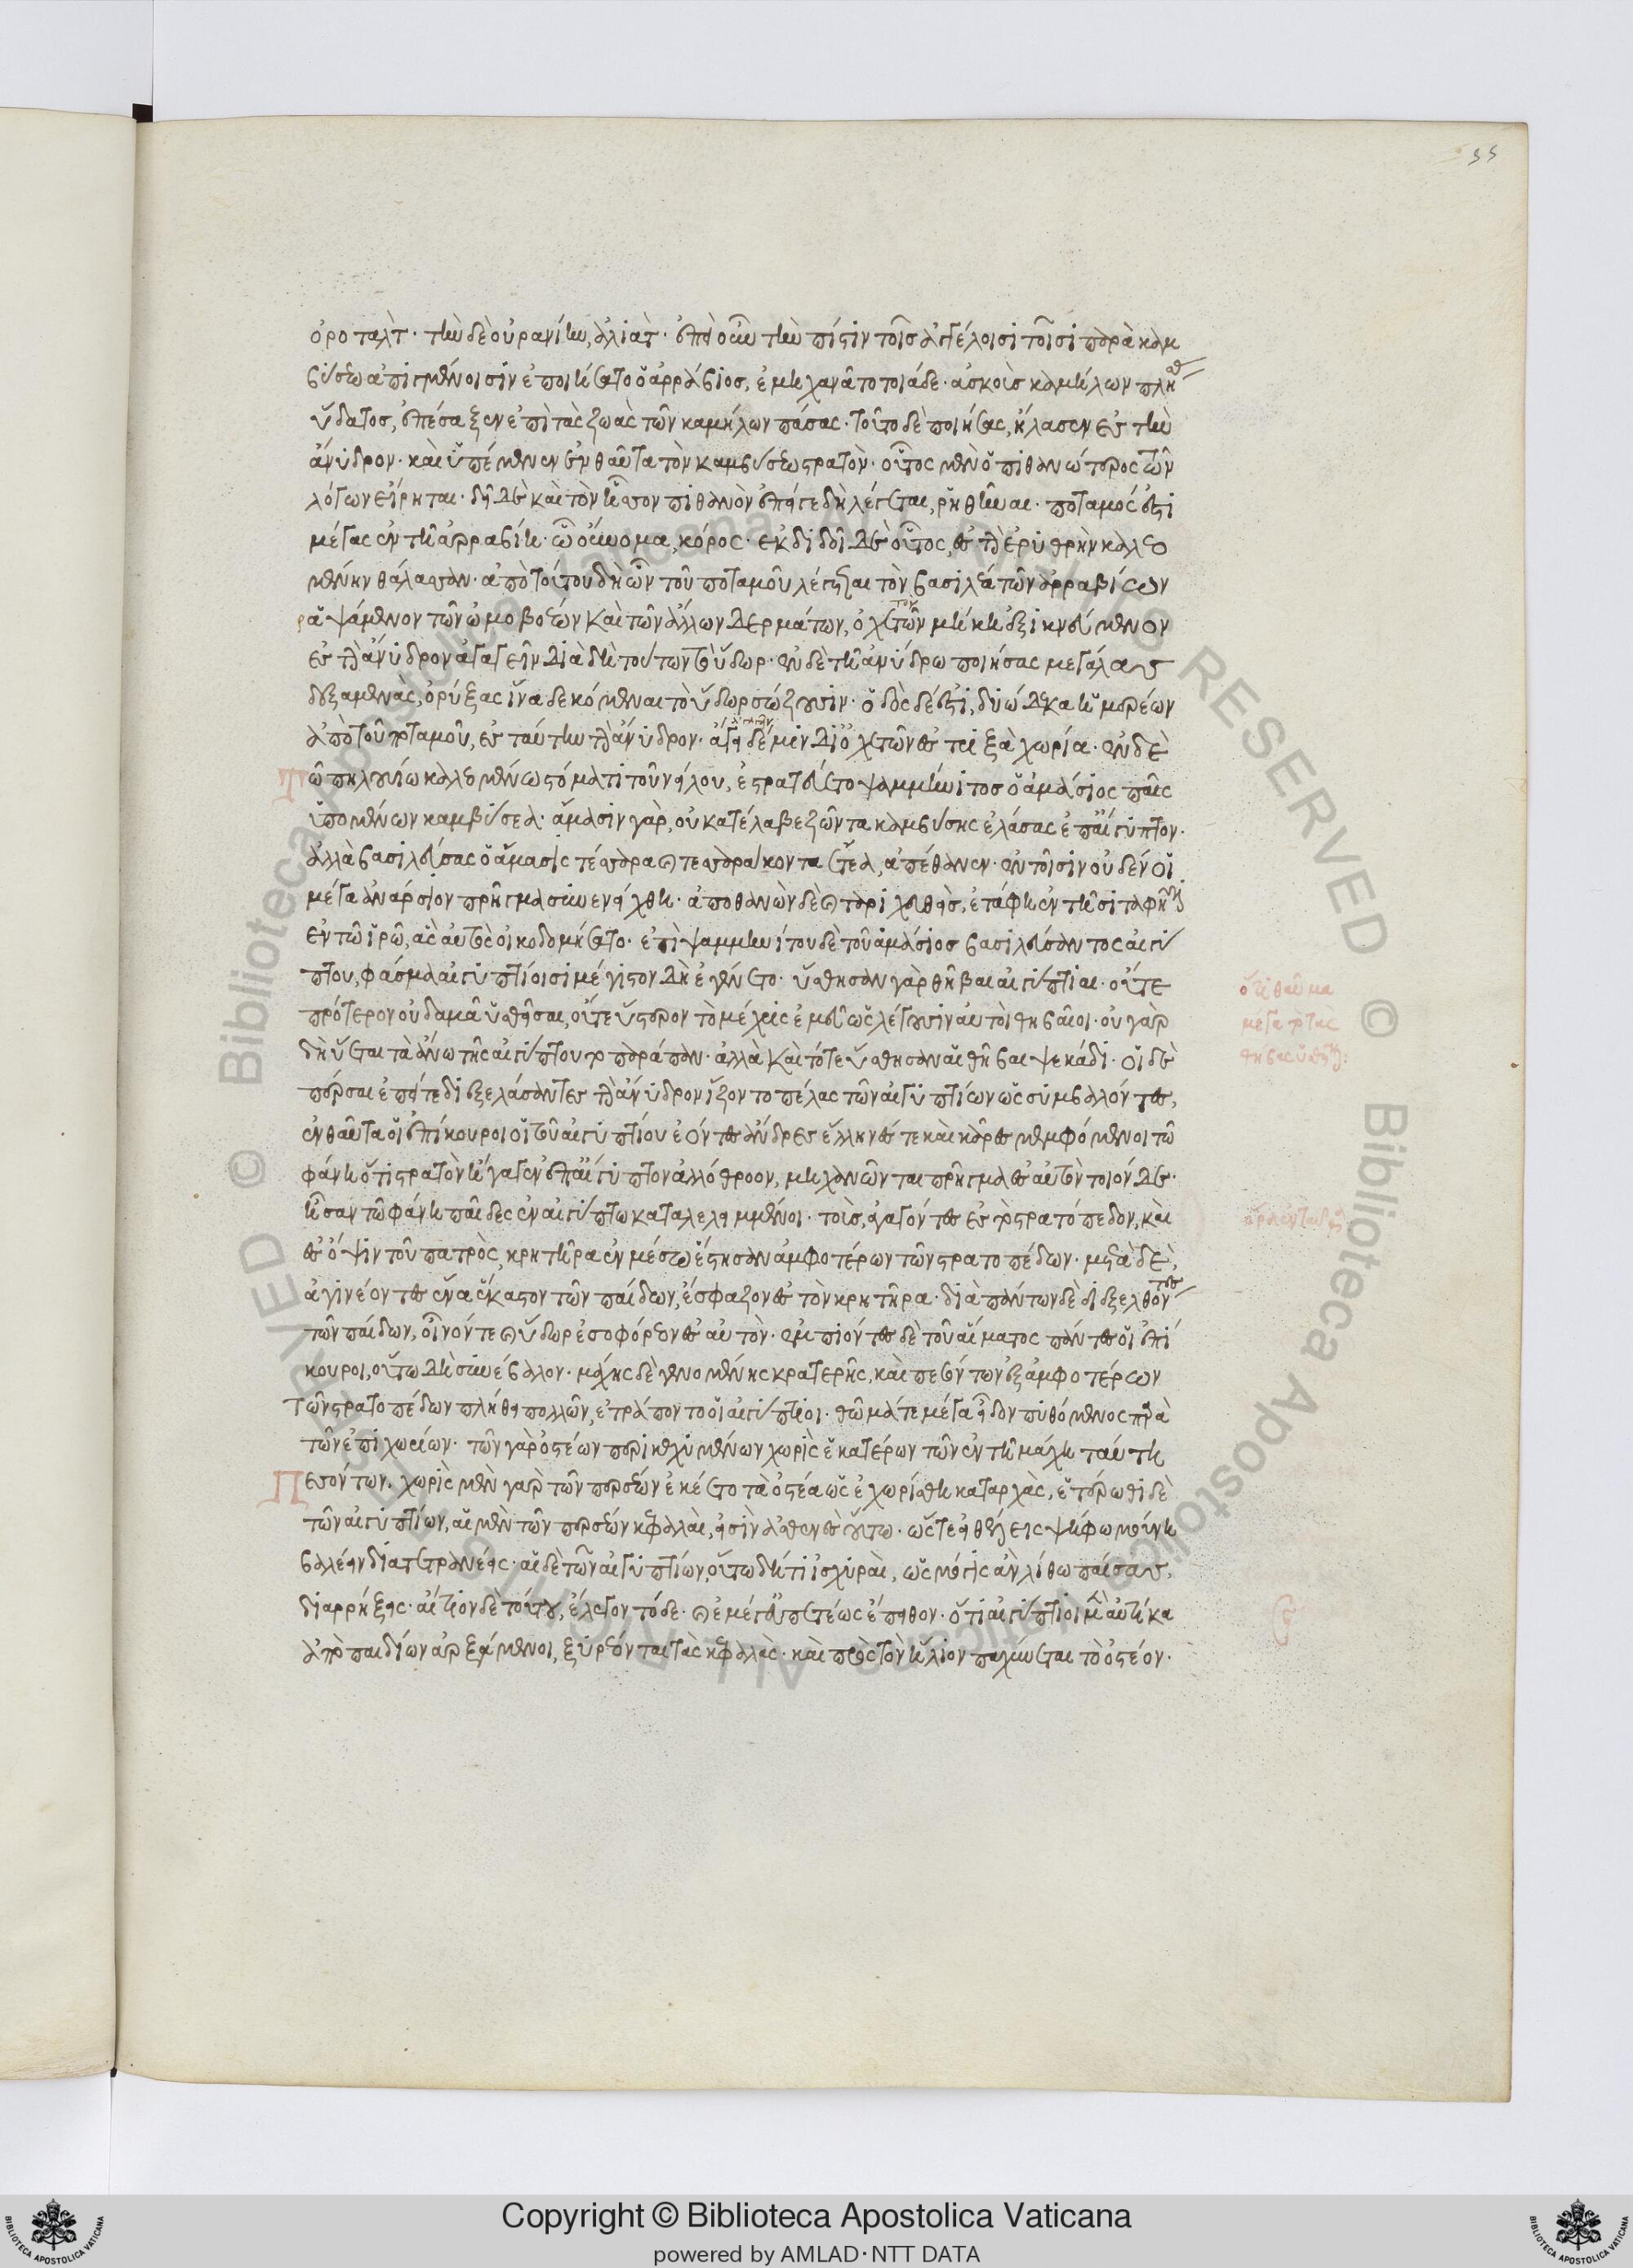 55
ὀροταλτ· τὴν δὲ οὐρανίην, ἀλιλάτ· ἐπεὶ ὦν τὴν πίστιν τοῖσ ἀγγέλοισι τοῖσι παρὰ καμ
βύσεω ἀπιγμένοισιν ἐποιήσατο ὁ ἀρράβιος, ἐμηχανᾶτο τοιάδε· ἀσκοὺσ καμήλων πλήσασ
ὕδατος, ἐπέσαξεν ἐπὶ τὰς ζωὰς τῶν καμήλων πάσας· τοῦτο δὲ ποιήσας, ἤλασεν ἐς τὴν
ἄνυδρον· καὶ ὑπέμενεν ἐνθαῦτα τὸν καμβύσεω στρατὸν· οὗτος μὲν ὁ πιθανώτερος τῶν
λόγων εἴρηται· δεῖ δὲ καὶ τὸν ἧσσον πιθανὸν ἐπεί γε δὴ λέγεται, ῥηθῆναι· ποταμός ἐστι
μέγας ἐν τῆ ἀρραβίη· ὧ οὔνομα, κόρος· ἐκδιδοῖ δὲ οὗτος, ἐς τὴν ἐρυθρὴν καλεο
μένην θάλασσαν· ἀπὸ τούτου δὴ ὦν τοῦ ποταμοῦ λέγεται τὸν βασιλέα τῶν ἀρραβίων
ῥαψάμενον τῶν ὠμοβοέων καὶ τῶν ἄλλων δερμάτων, ὀχετὸν μήκει ἐξικνεύμενον
ἐς τὴν ἄνυδρον ἀγαγεῖν διὰ δὴ τούτων τὸ ὕδωρ· ἐν δὲ τῆ ἀνύδρω ποιήσας μεγάλας
δεξαμενὰς, ὀρύξας ἵνα δεκόμεναι τὸ ὕδωρ σώζουσιν· ὁδὸς δέ ἐστι, δυώδεκα ἡμερέων
ἀπὸ τοῦ ποταμοῦ, ἐς ταύτην τὴν ἄνυδρον· ἄγειν δέ μιν δι' ὀχετῶν ἐς τριξὰ χωρία· ἐν δὲ
τῶ πηλουσίω καλεομένω στόματι τοῦ νείλου, ἐστρατεύετο ψαμμήνιτοσ ὁ ἀμάσιος παῖς
ὑπομένων καμβύσεα· ἄμασιν γὰρ, οὐ κατέλαβε ζῶντα καμβύσης ἐλάσας ἐπ' αἴγυπτον·
ἀλλὰ βασιλεύσας ὁ ἄμασις τέσσερα καὶ τεσσεράκοντα ἔτεα, ἀπέθανεν· ἐν τοῖσιν οὐδέν οἱ
μέγα ἀνάρσιον πρῆγμα συνενείχθη· ἀποθανὼν δὲ καὶ ταριχευθεὶς, ἐτάφη ἐν τῆσι ταφῆσι
ἐν τῶ ἱρῶ, ἃς αὐτὸς οἰκοδομήσατο· ἐπὶ ψαμμηνίτου δὲ τοῦ ἀμάσιοσ βασιλεύοντος αἰγύ
πτου, φάσμα αἰγυπτίοισι μέγιστον δὴ ἐγένετο· ὕσθησαν γὰρ θῆβαι αἰγύπτιαι· οὔτε
πρότερον οὐδαμᾶ ὑσθῆσαι, οὔτε ὕστερον τὸ μέχρις ἐμεῦ ὡς λέγουσιν αὐτοὶ θηβαῖοι· οὐ γὰρ
δὴ ὕεται τὰ ἄνω τῆς αἰγύπτου τὸ παράπαν· ἀλλὰ καὶ τότε ὕσθησαν αἱ θῆβαι ψεκάδι· οἱ δὲ
πέρσαι ἐπεί τε διεξελάσαντες τὴν ἄνυδρον ἵζοντο πέλας τῶν αἰγυπτίων ὡς συμβαλόντες,
ἐνθαῦτα οἱ ἐπίκουροι οἱ τοῦ αἰγυπτίου ἐόντες ἄνδρες ἕλληνές τε καὶ κᾶρες μεμφόμενοι τῶ
φάνη ὅτι στρατὸν ἤγαγεν ἐπ' αἴγυπτον ἀλλόθροον, μηχανῶνται πρῆγμα ἐς αὐτὸν τοιόνδε·
ἦσαν τῶ φάνη παῖδες ἐν αἰγύπτω καταλελειμμένοι· τοὺσ, ἀγαγόντες ἐς τὸ στρατόπεδον, καὶ
ἐς ὄψιν τοῦ πατρὸς, κρητῆρα ἐν μέσω ἔστησαν ἀμφοτέρων τῶν στρατοπέδων· μετὰ δὲ,
ἀγινέοντες ἕνα ἕκαστον τῶν παίδων, ἔσφαζον ἐς τὸν κρητῆρα· διὰ πάντων δὲ διεξελθόντες
τῶν παίδων, οἶνόν τε καὶ ὕδωρ ἐσεφόρεον ἐς αὐτόν· ἐμπιόντες δὲ τοῦ αἵματος πάντες οἱ ἐπί
κουροι, οὕτω δὴ συνέβαλον· μάχης δὲ γενομένης κρατερῆς, καὶ πεσόντων ἐξ ἀμφοτέρων
τῶν στρατοπέδων πλήθει πολλῶν, ἐτράποντο οἱ αἰγύπτιοι· θῶμά τε μέγα εἶδον πυθόμενος παρὰ
τῶν ἐπιχωρίων· τῶν γὰρ ὀστέων περικεχυμένων χωρὶς ἑκατέρων τῶν ἐν τῆ μάχη ταύτη
πεσόντων. χωρὶς μὲν γὰρ τῶν περσέων ἐκέετο τὰ ὀστέα ὡς ἐχωρίσθη καταρχὰς, ἑτέρωθι δὲ
τῶν αἰγυπτίων, αἱ μὲν τῶν περσέων κεφαλαὶ, εἰσὶν ἀσθενέες οὕτω· ὥστε εἰ θέλεις ψήφω μούνη
βαλέειν διατετρανέεις· αἱ δὲ τῶν αἰγυπτίων, οὕτω δή τι ἰσχυραὶ, ὡς μόγις ἂν λίθω παίσας,
διαρρήξεις· αἴτιον δὲ τούτου, ἔλεγον τόδε· καὶ ἐμέ γ' εὐπετέως ἔπειθον· ὅτι αἰγύπτιοι μὲν αὐτίκα
ἀπὸ παιδίων ἀρξάμενοι, ξυρέονται τὰς κεφαλὰς· καὶ πρὸς τὸν ἥλιον παχύνεται τὸ ὀστέον·
ὅτι θαῦμα
μέγα τὸ τὰς
θήβας ὑσθῆναι: